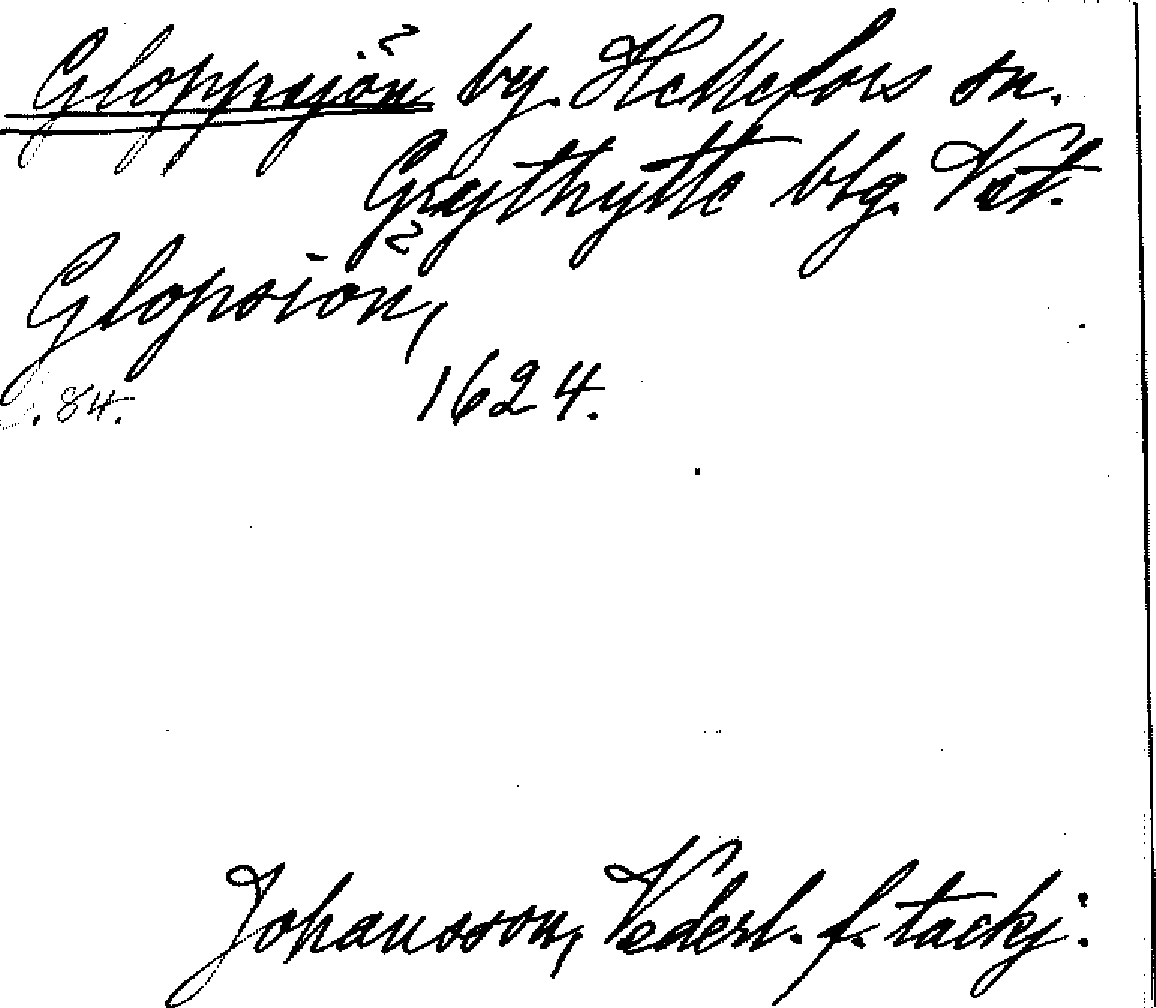 Gloppsjön by. Hellefors sn.
Grythytte blg. Vst.
Glopsiön,
.84. 1624.
Johansson, Vederl. f. tackj: